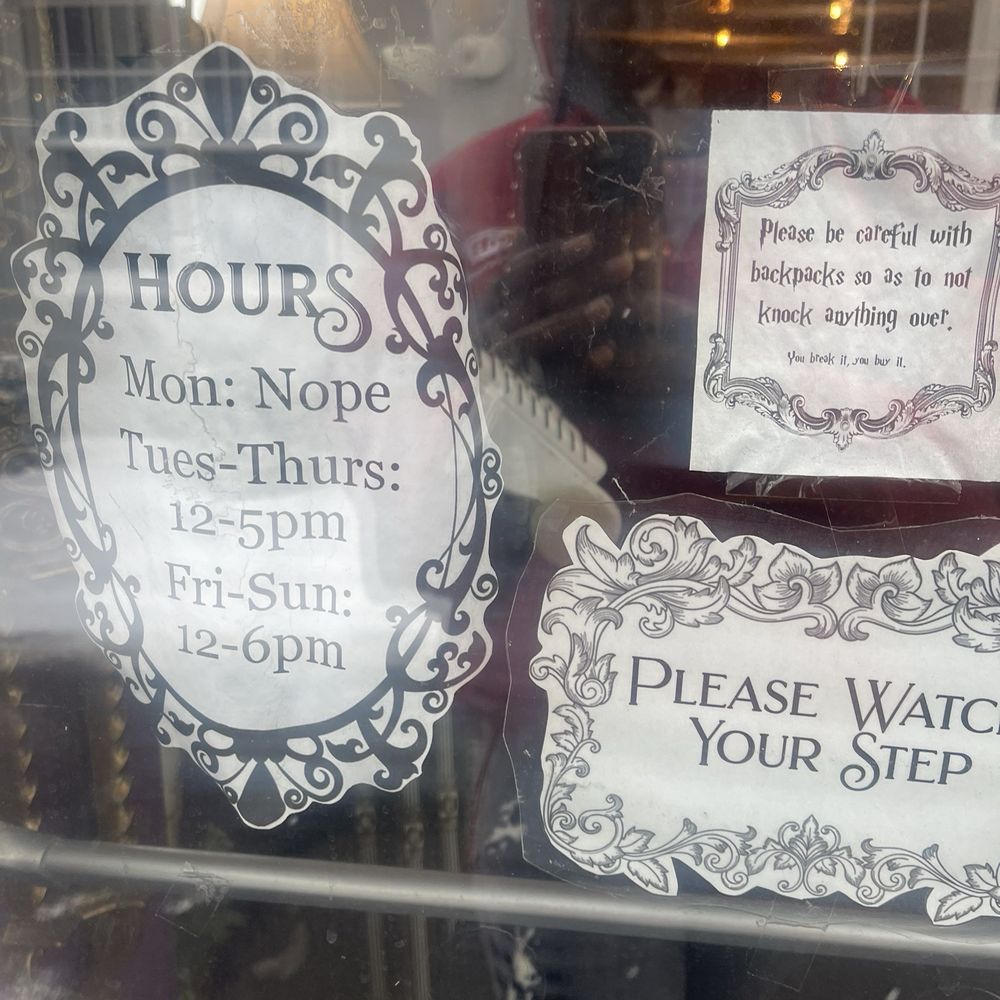 HOURS
Mon: Nope
Tues-Thurs:
12-5pm
Fri-Sun:
12-6pm
Please be careful with
backpacks so as to not
knock anything over.
You break it, you buy it.
PLEASE WATC
YOUR STEP